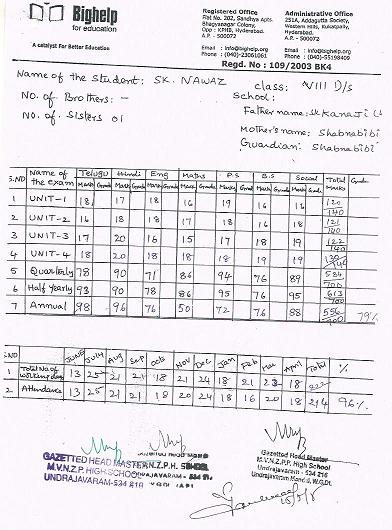 Bighelp
for education
A catalyst For Better Education
Registered Office
Flat No. 202, Sandhya Apts.
Bhagyanagar Colony,
Opp : KPHB, Hyderabad.
A.P. - 500072
Email : info@bighelp.org
Phone : (040)-23061061
Administrative Office
251A, Addagutta Society,
Western Hills, Kukatpally,
Hyderabad.
A.P. - 500072
Email : info@bighelp.org
Phone : (040)-55198409
Regd. No : 109/2003 BK4
Name of the Student: SK. NAWAZ class: VIII D/s
No. of Brothers: - School:
No. of Sisters 01 Father name: SK Kanaji
Mother's name: Shabnabibi
Guardian: Shabnabibi
S.NO Name of the Exam Telugu Hindi Eng Maths P.S B.S Social Total Marks Grade
Mark Grade Mark Grade Mark Grade Mark Grade Mark Grade Mark Grade Mark Grade
1 UNIT-1 18 17 18 16 19 16 16 120/140
2 UNIT-2 16 18 18 17 18 16 18 121/140
3 UNIT-3 17 20 16 15 17 18 19 122/140
4 UNIT-4 18 20 18 18 18 19 19
5 Quarterly 78 90 71 86 94 76 89 584/700
6 Half Yearly 93 90 78 86 95 76 95 613/700
7 Annual 98 96 76 50 72 76 88 556/700 79%
S.NO June July Aug Sep Oct Nov Dec Jan Feb Mar April Total %
1 Total No of working days 13 25 21 21 18 21 24 18 21 22 18
2 Attendance 13 25 21 21 18 20 24 18 16 20 18 214 96%
GAZETTED HEAD MASTER
M.V.N.Z.P.P. HIGH SCHOOL
UNDRAJAVARAM-534 216
Gazetted Head Master
M.V.N.Z.P.P. High School
Undrajavaram - 534 216
Undrajavaram Mandal, W.G.Dt.